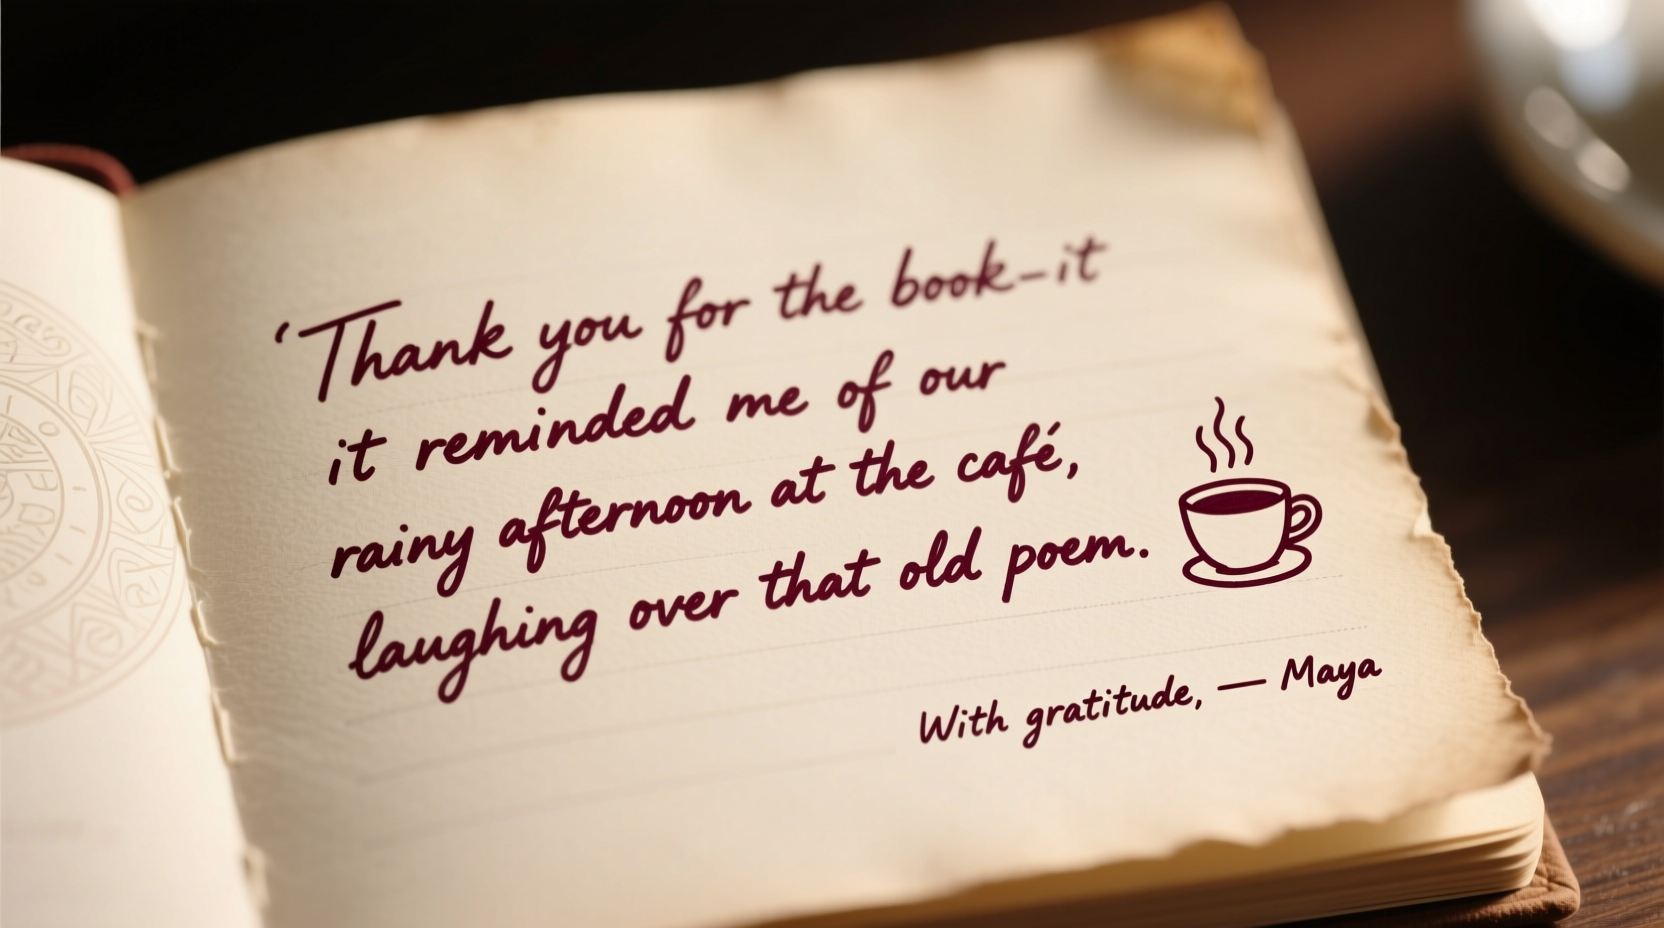 ‘Thank you for the book–it
it reminded me of our
rainy afternoon at the café,
laughing over that old poem.
With gratitude, — Maya